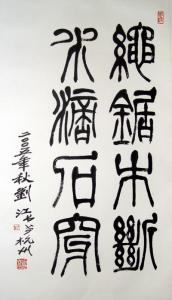 繩鋸木斷
水滴石穿
二〇〇五年秋劉
江書於杭州